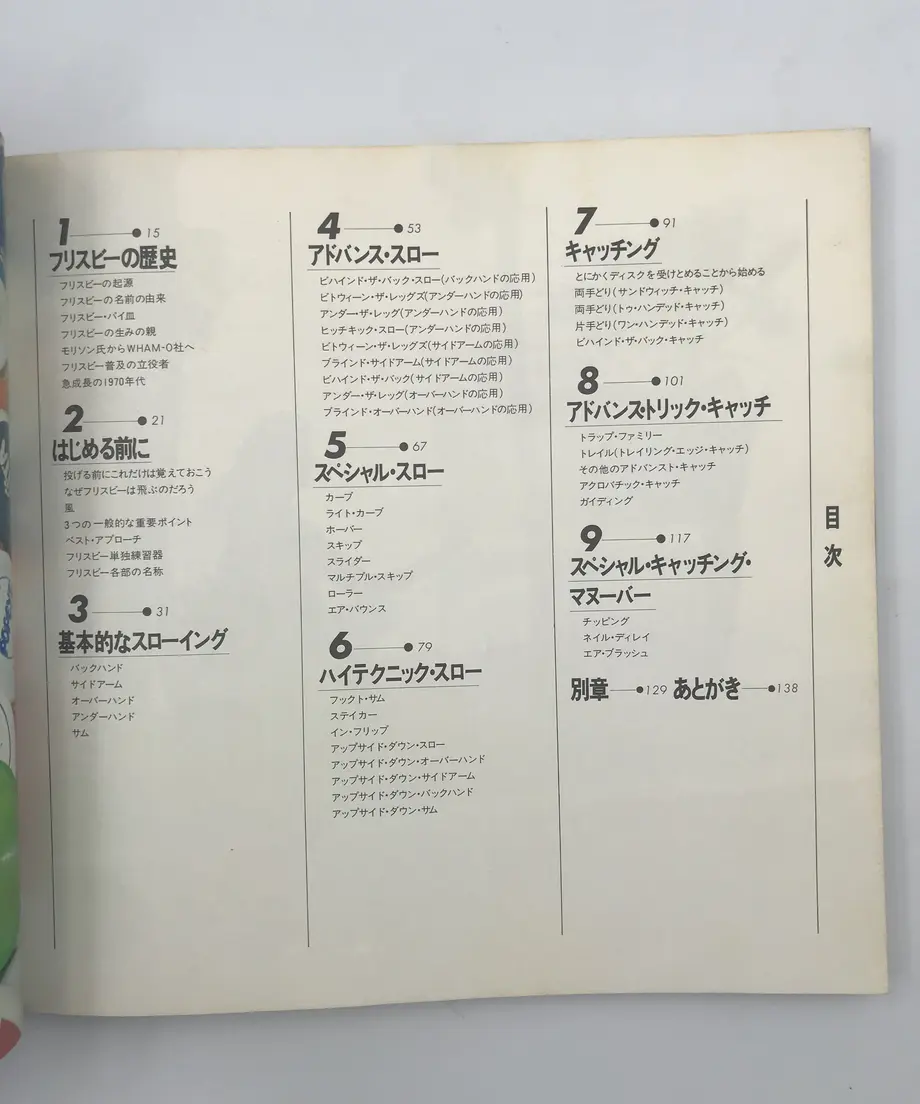 1 15
フリスビーの歴史
フリスビーの起源
フリスビーの名前の由来
フリスビー・パイ皿
フリスビーの生みの親
モリソン氏からWHAM-O社へ
フリスビー普及の立役者
急成長の1970年代
2 21
はじめる前に
投げる前にこれだけは覚えておこう
なぜフリスビーは飛ぶのだろう
風
3つの一般的な重要ポイント
ベスト・アプローチ
フリスビー単独練習器
フリスビー各部の名称
3 31
基本的なスローイング
バックハンド
サイドアーム
オーバーハンド
アンダーハンド
サム
4 53
アドバンス・スロー
ビハインド・ザ・バック・スロー(バックハンドの応用)
ビトウィーン・ザ・レッグズ(アンダーハンドの応用)
アンダー・ザ・レッグ(アンダーハンドの応用)
ヒッチキック・スロー(アンダーハンドの応用)
ビトウィーン・ザ・レッグズ(サイドアームの応用)
ブラインド・サイドアーム(サイドアームの応用)
ビハインド・ザ・バック(サイドアームの応用)
アンダー・ザ・レッグ(オーバーハンドの応用)
ブラインド・オーバーハンド(オーバーハンドの応用)
5 67
スペシャル・スロー
カーブ
ライト・カーブ
ホーバー
スキップ
スライダー
マルチプル・スキップ
ローラー
エア・バウンス
6 79
ハイテクニック・スロー
フックト・サム
ステイカー
イン・フリップ
アップサイド・ダウン・スロー
アップサイド・ダウン・オーバーハンド
アップサイド・ダウン・サイドアーム
アップサイド・ダウン・バックハンド
アップサイド・ダウン・サム
7 91
キャッチング
とにかくディスクを受けとめることから始める
両手どり(サンドウィッチ・キャッチ)
両手どり(トゥ・ハンデッド・キャッチ)
片手どり(ワン・ハンデッド・キャッチ)
ビハインド・ザ・バック・キャッチ
8 101
アドバンス・トリック・キャッチ
トラップ・ファミリー
トレイル(トレイリング・エッジ・キャッチ)
その他のアドバンスト・キャッチ
アクロバチック・キャッチ
ガイディング
9 117
スペシャル・キャッチング・
マヌーバー
チッピング
ネイル・ディレイ
エア・ブラッシュ
別章 129 あとがき 138
目次